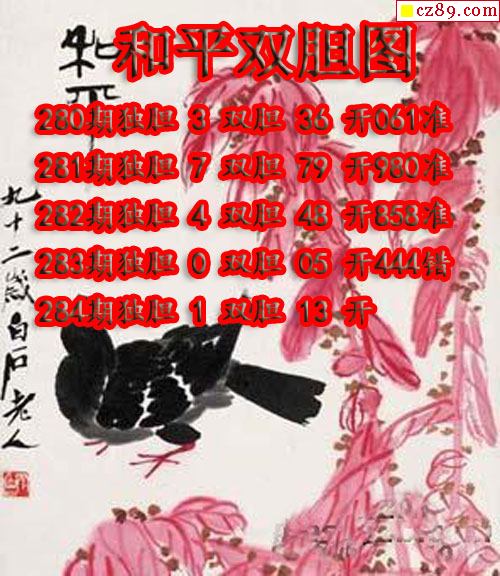 cz89.com
和平双胆图
280期独胆 3 双胆 36 开061准
281期独胆 7 双胆 79 开980准
282期独胆 4 双胆 48 开858准
283期独胆 0 双胆 05 开444错
284期独胆 1 双胆 13 开
九十二岁白石老人